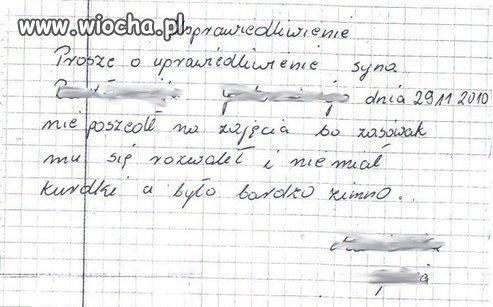 www.wiocha.pl
usprawiedliwienie
Prosze o uprawiedliwienie syna
dnia 29 11 2010
nie poszedł na zajęcia bo zasówak
mu się rozwalił i nie miał
kurdki a było bardzo zimno..